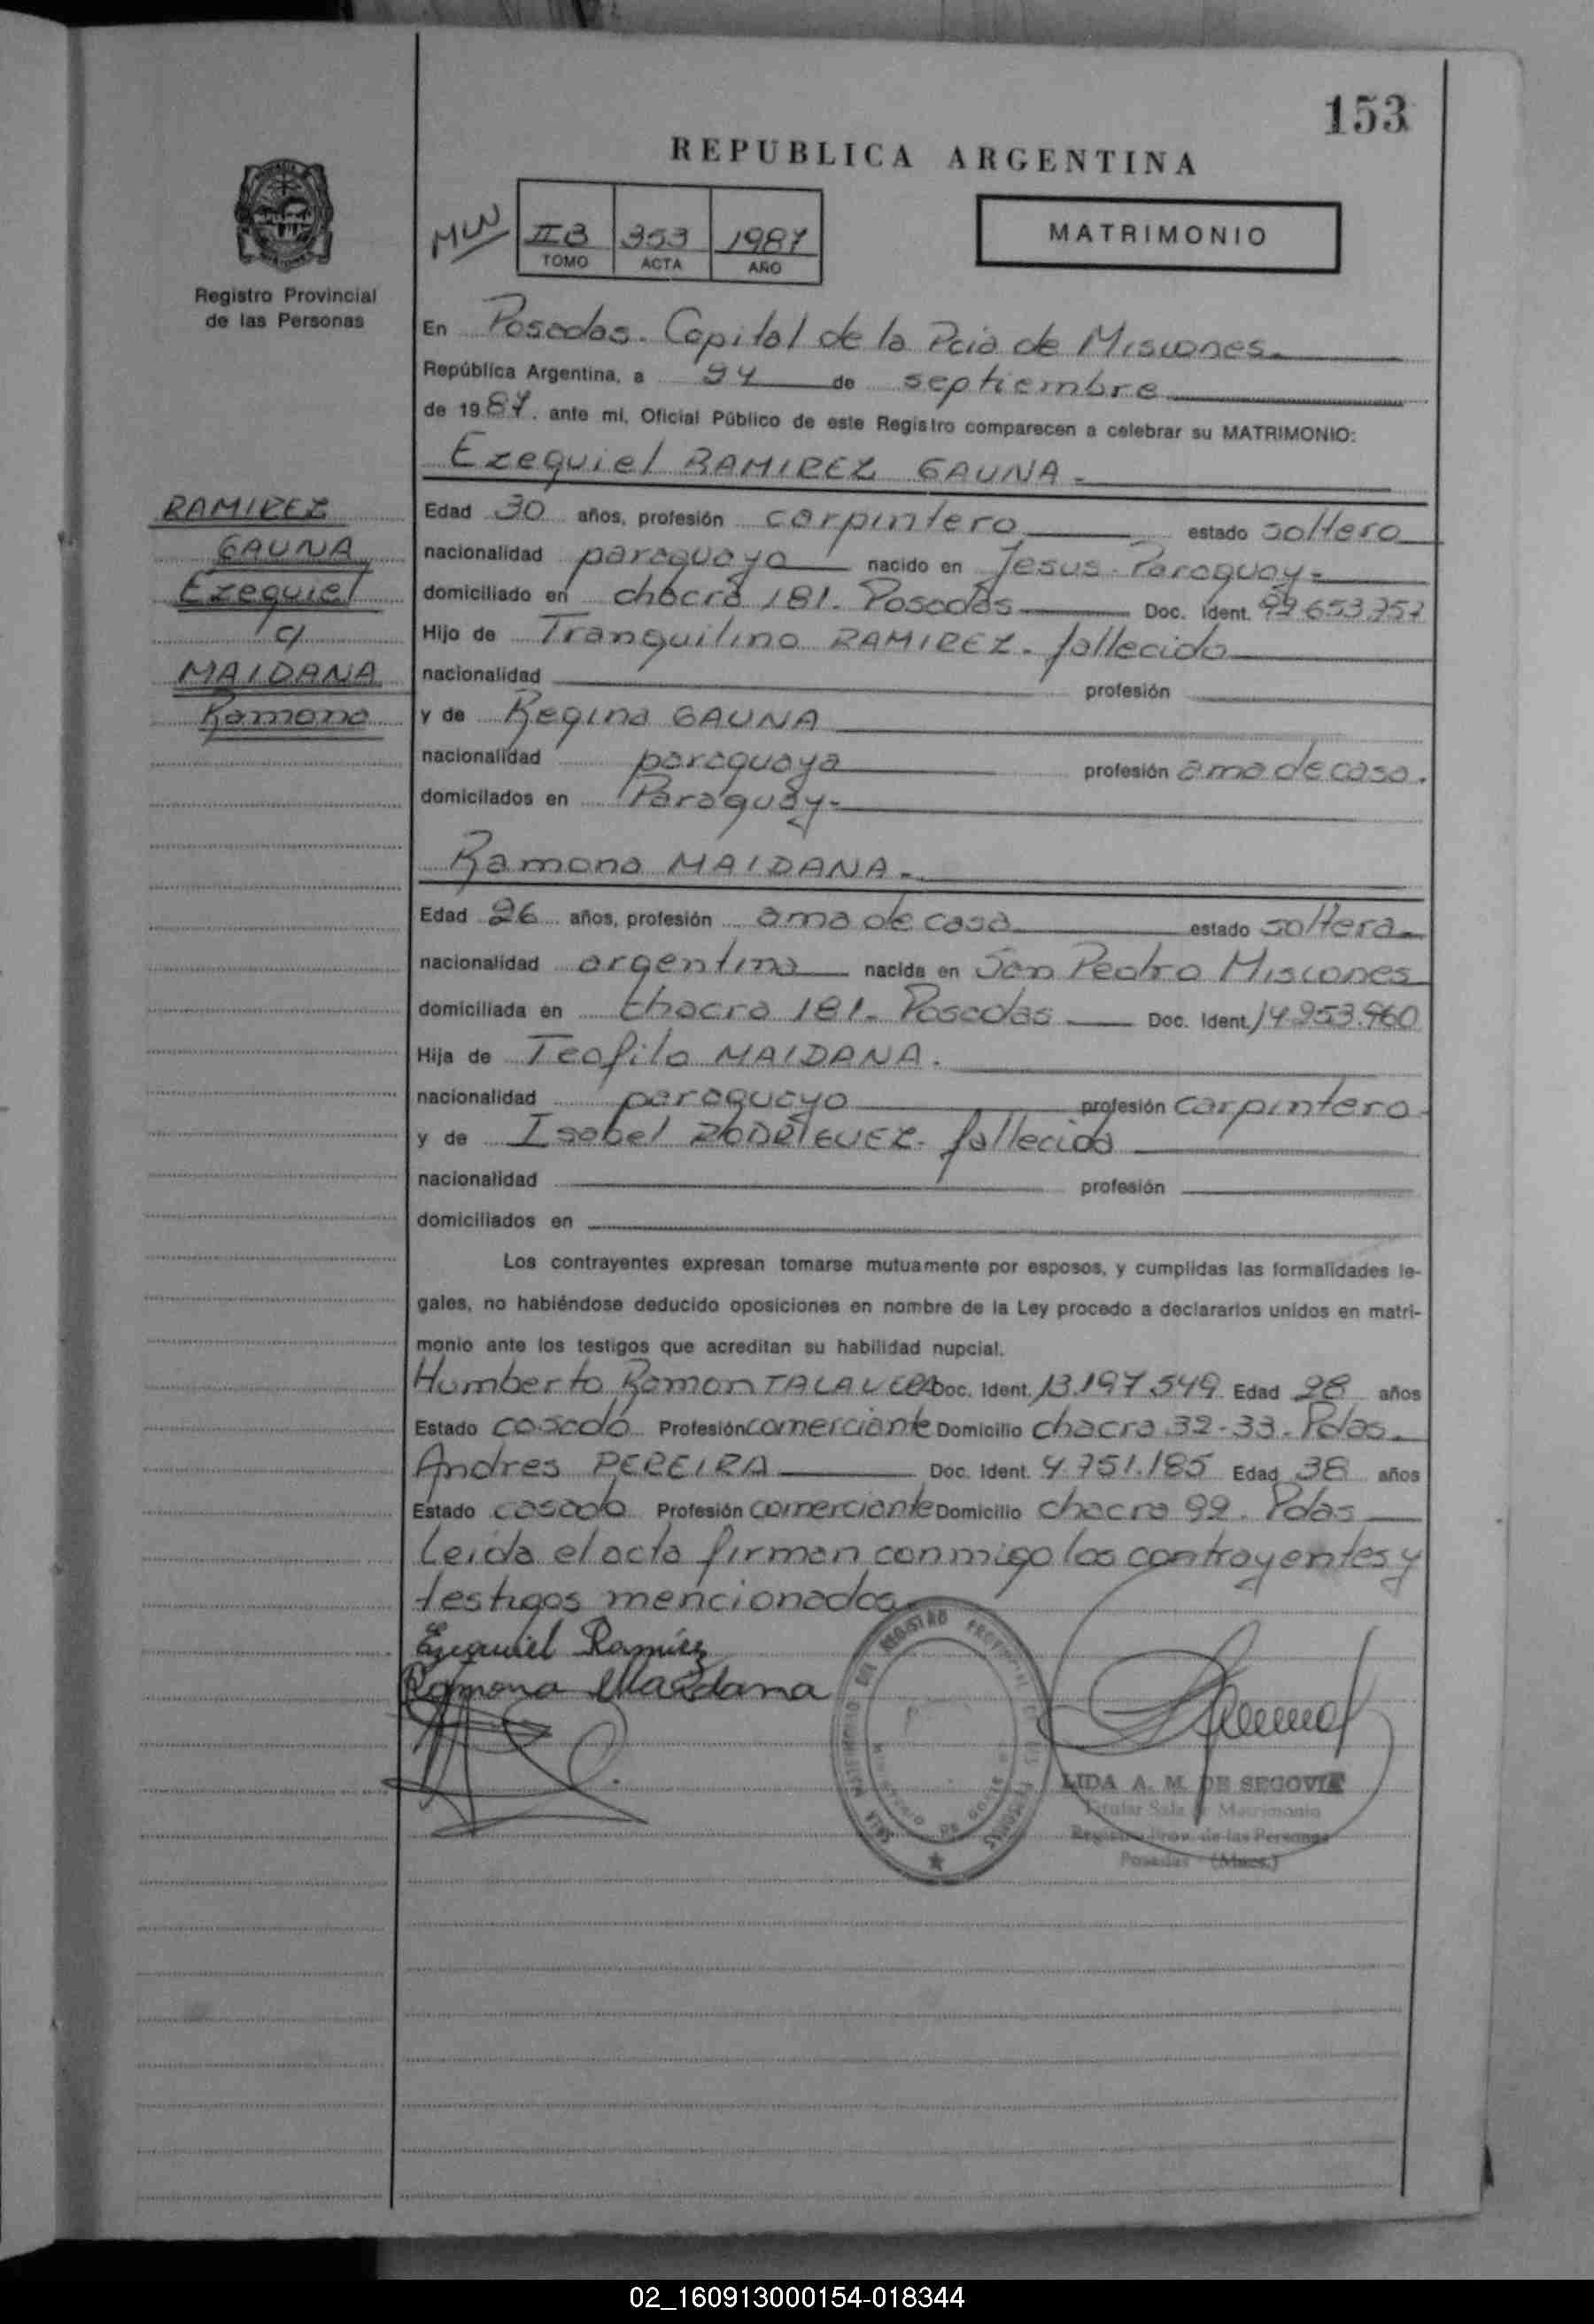 153
REPUBLICA ARGENTINA
MLN
II B 353 1987
TOMO ACTA AÑO
MATRIMONIO
Registro Provincial
de las Personas
RAMIREZ
GAUNA
Ezequiel
c/
MAIDANA
Ramona
En Posadas. Capital de la Pcia de Misiones.
República Argentina, a 24 de septiembre
de 1987. ante mí, Oficial Público de este Registro comparecen a celebrar su MATRIMONIO:
Ezequiel RAMIREZ GAUNA.
Edad 30 años, profesión carpintero estado soltero
nacionalidad paraguayo nacido en Jesus. Paraguay.
domiciliado en chacra 181. Posadas Doc. Ident.
Hijo de Tranquilino RAMIREZ. fallecido
nacionalidad profesión
y de Regina GAUNA
nacionalidad paraguaya profesión ama de casa.
domiciliados en Paraguay.
Ramona MAIDANA.
Edad 26 años, profesión ama de casa estado soltera
nacionalidad argentina nacida en San Pedro Misiones
domiciliada en chacra 181. Posadas Doc. Ident. 14.253.960
Hija de Teofilo MAIDANA.
nacionalidad paraguayo profesión carpintero
y de Isabel RODRIGUEZ. fallecida
nacionalidad profesión
domiciliados en
Los contrayentes expresan tomarse mutuamente por esposos, y cumplidas las formalidades le-
gales, no habiéndose deducido oposiciones en nombre de la Ley procedo a declararlos unidos en matri-
monio ante los testigos que acreditan su habilidad nupcial.
Humberto Ramon TALAVERA Doc. Ident. 13.197.549 Edad 28 años
Estado casado Profesión comerciante Domicilio chacra 32-33. Pdas.
Andres PEREIRA Doc. Ident. 4.751.185 Edad 38 años
Estado casado Profesión comerciante Domicilio chacra 99. Pdas
Leida el acta firman conmigo los contrayentes y
testigos mencionados.
Ezequiel Ramírez
Ramona Maidana
LIDA A. M. DE SEGOVIA
Titular Sala de Matrimonio
Registro Prov. de las Personas
Posadas - (Mnes.)
02_160913000154-018344